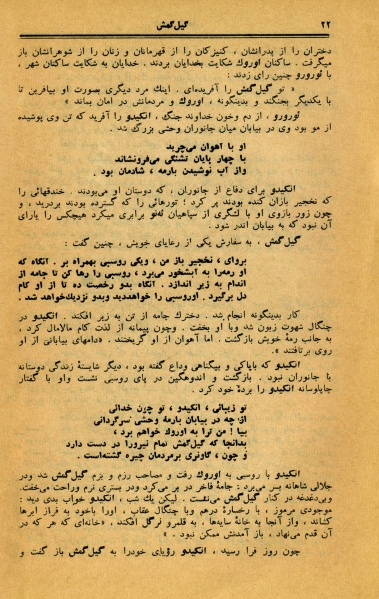 ۲۲ گیل‌گمش
دختران را از پدرانشان ، کنیزکان را از قهرمانان و زنان را از شوهرانشان باز
میگرفت . ساکنان اوروک شکایت بخدایان بردند . خدایان به شکایت ساکنان شهر ،
با تورورو چنین رای زدند :
« تو گیل‌گمش را آفریده‌ای . اینك مرد دیگری بصورت او بیافرین تا
با یکدیگر بجنگند و بدینگونه ، اوروک و مردمانش در امان بماند »
تورورو ، از دم وخون خداوند جنگ ، انکیدو را آفرید که تن وی پوشیده
از مو بود وی در بیابان میان جانوران وحشی بزرگ شد .
او با آهوان می‌چرید
با چهار پایان تشنگی می‌فرونشاند
واز آب نوشیدن بارمه ، شادمان بود .
انکیدو برای دفاع از جانوران ، که دوستان او می‌بودند . خندقهائی را
که نخجیر بازان کنده بودند پر کرد ؛ تورهائی را که گسترده بودند بردرید ، و
چون زور بازوی او با لشگری از سپاهیان برابری میکرد هیچکس را یارای
آن نبود که به بیابان اندر شود .
گیل‌گمش ، به سفارش یکی از رعایای خویش ، چنین گفت :
بروای ، نخجیر باز من ، ویکی روسبی بهمراه بر . آنگاه که
او رمه‌را به آبشخور می‌برد ، روسبی را رها کن تا جامه از
اندام به زیر اندازد . آنگاه بدو رخصت ده تا از او کام
دل برگیرد . اوروسبی را خواهددید وبدو نزدیك‌خواهد شد .
کار بدینگونه انجام شد . دخترك جامه از تن به زیر افکند . انکیدو در
چنگال شهوت زبون شد وبا او بخفت . وچون پیمانه از لذت کام مالامال کرد ،
به جانب رمهٔ خویش بازگشت . اما آهوان از او گریختند . «دامهای بیابانی از او
روی برتافتند »
انکیدو که باپاکی و بیگناهی وداع گفته بود ، دیگر شایستهٔ زندگی دوستانه
با جانوران نبود . بازگشت و اندوهگین در پای روسبی نشست واو با گفتار
چاپلوسانه انکیدو را بردهٔ خود کرد .
تو زیبائی ، انکیدو ، تو چون خدائی
از چه در بیابان بارمهٔ وحشی سرگردانی
بیا ! من ترا به اوروک خواهم برد ،
بدانجا که گیل‌گمش تمام نیرورا در دست دارد
و چون ، گاونری برمردمان چیره گشته‌است .
انکیدو با روسبی به اوروک رفت و مصاحب رزم و بزم گیل‌گمش شد ودر
جلالی شاهانه بسر می‌برد : جامهٔ فاخر در بر می‌کرد ودر بستری نرم وراحت می‌خفت
وبی‌دغدغه در کنار گیل‌گمش می‌نشست . لیکن یك شب ، انکیدو خواب بدی دید :
موجودی مرموز ، با رخسارهٔ درهم وبا چنگال عقاب ، اورا باخود به فراز ابرها
کشاند ، واز آنجا به خانهٔ سایه‌ها ، به قلمرو نرگل افکند ، «خانه‌ای که هر که در
آن قدم می‌نهاد ، باز آمدنش ممکن نبود . »
چون روز فرا رسید ، انکیدو رؤیای خودرا به گیل‌گمش باز گفت و